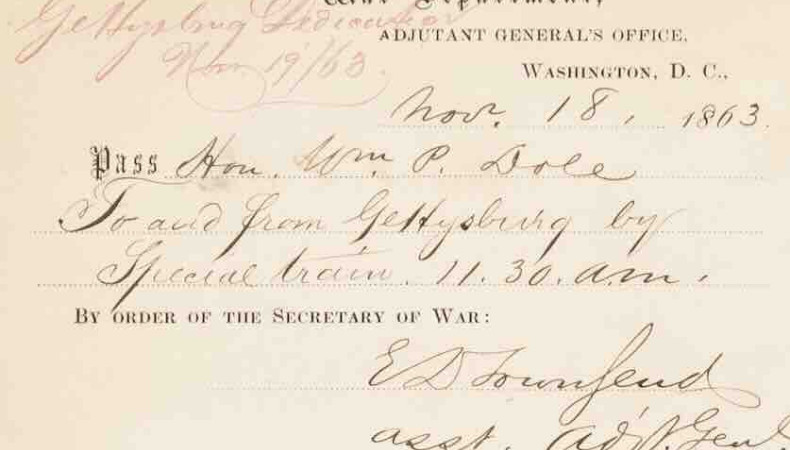 War Department,
Gettysburg Dedication
ADJUTANT GENERAL'S OFFICE,
Nov. 19/63.
WASHINGTON, D. C.,
Nov. 18, 1863.
Pass Hon. Wm. P. Dole
To and from Gettysburg by
Special train. 11.30. a.m.
BY ORDER OF THE SECRETARY OF WAR:
E D Townsend
asst. Adjt. Genl.